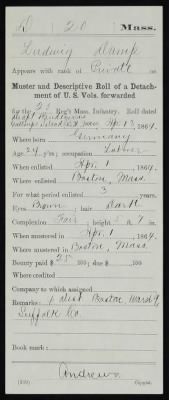 D 20 Mass.
Ludwig Damp
Appears with rank of Private on
Muster and Descriptive Roll of a Detach-
ment of U. S. Vols. forwarded
for the 20 Reg't Mass. Infantry. Roll dated
Gallops Island Apr 13, 1864.
Where born Germany
Age 24 y'rs; occupation Laborer
When enlisted Apr. 1, 1864.
Where enlisted Boston, Mass.
For what period enlisted 3 years.
Eyes Brown; hair Dark
Complexion Fair; height 5 ft. 7 in.
When mustered in Apr. 1, 1864.
Where mustered in Boston, Mass.
Bounty paid $ 25 100; due $ 100
Where credited
Company to which assigned
Remarks: 4 dist Boston Ward 9
Suffolk Co.
Book mark:
Andrews
Copyist.